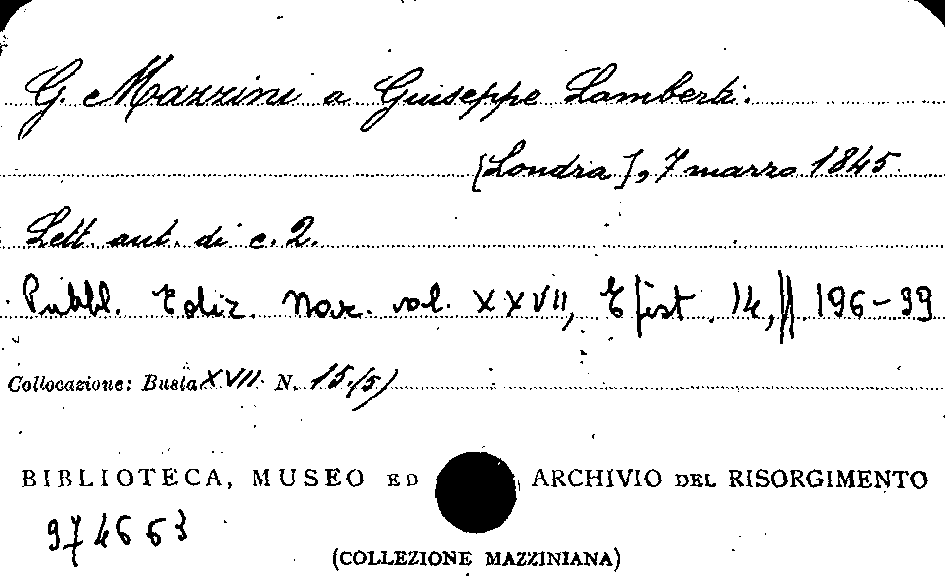 G. Mazzini a Giuseppe Lamberti.
[Londra], 7 marzo 1845.
Lett. aut. di c. 2.
Pubbl. Ediz. Naz. vol. XXVII, Epist. 14, pp. 196-99
Collocazione: Busta XVII N. 15.(5)
BIBLIOTECA, MUSEO ED ARCHIVIO DEL RISORGIMENTO
974663
(COLLEZIONE MAZZINIANA)